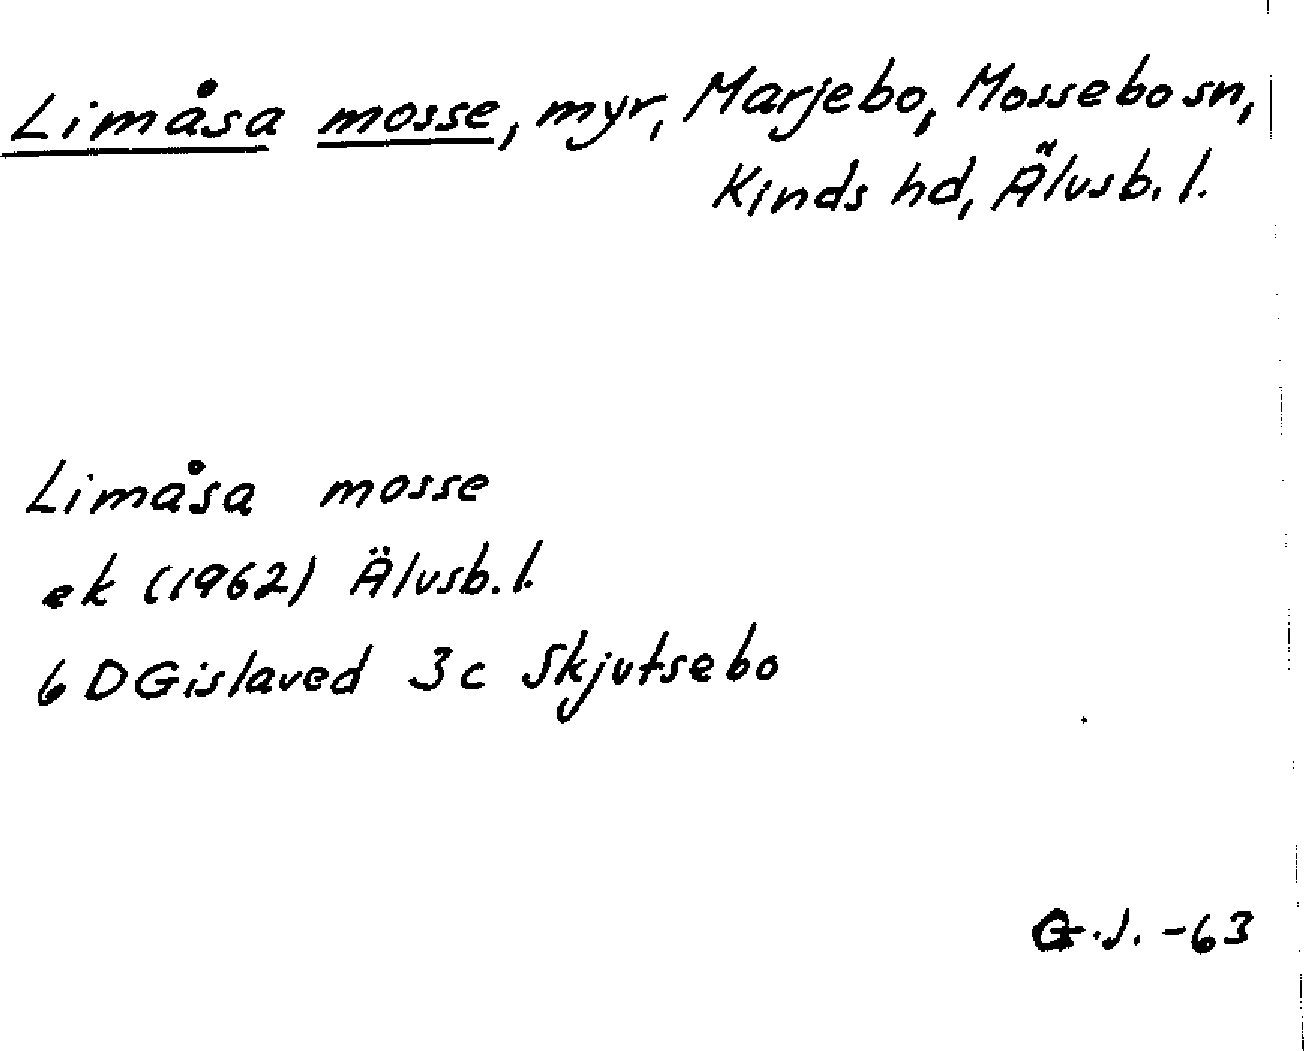 Limåsa mosse, myr, Marjebo, Mossebo sn,
Kinds hd, Älvsb. l.
Limåsa mosse
ek (1962) Älvsb. l.
6 D Gislaved 3 c Skjutsebo
G.J. -63